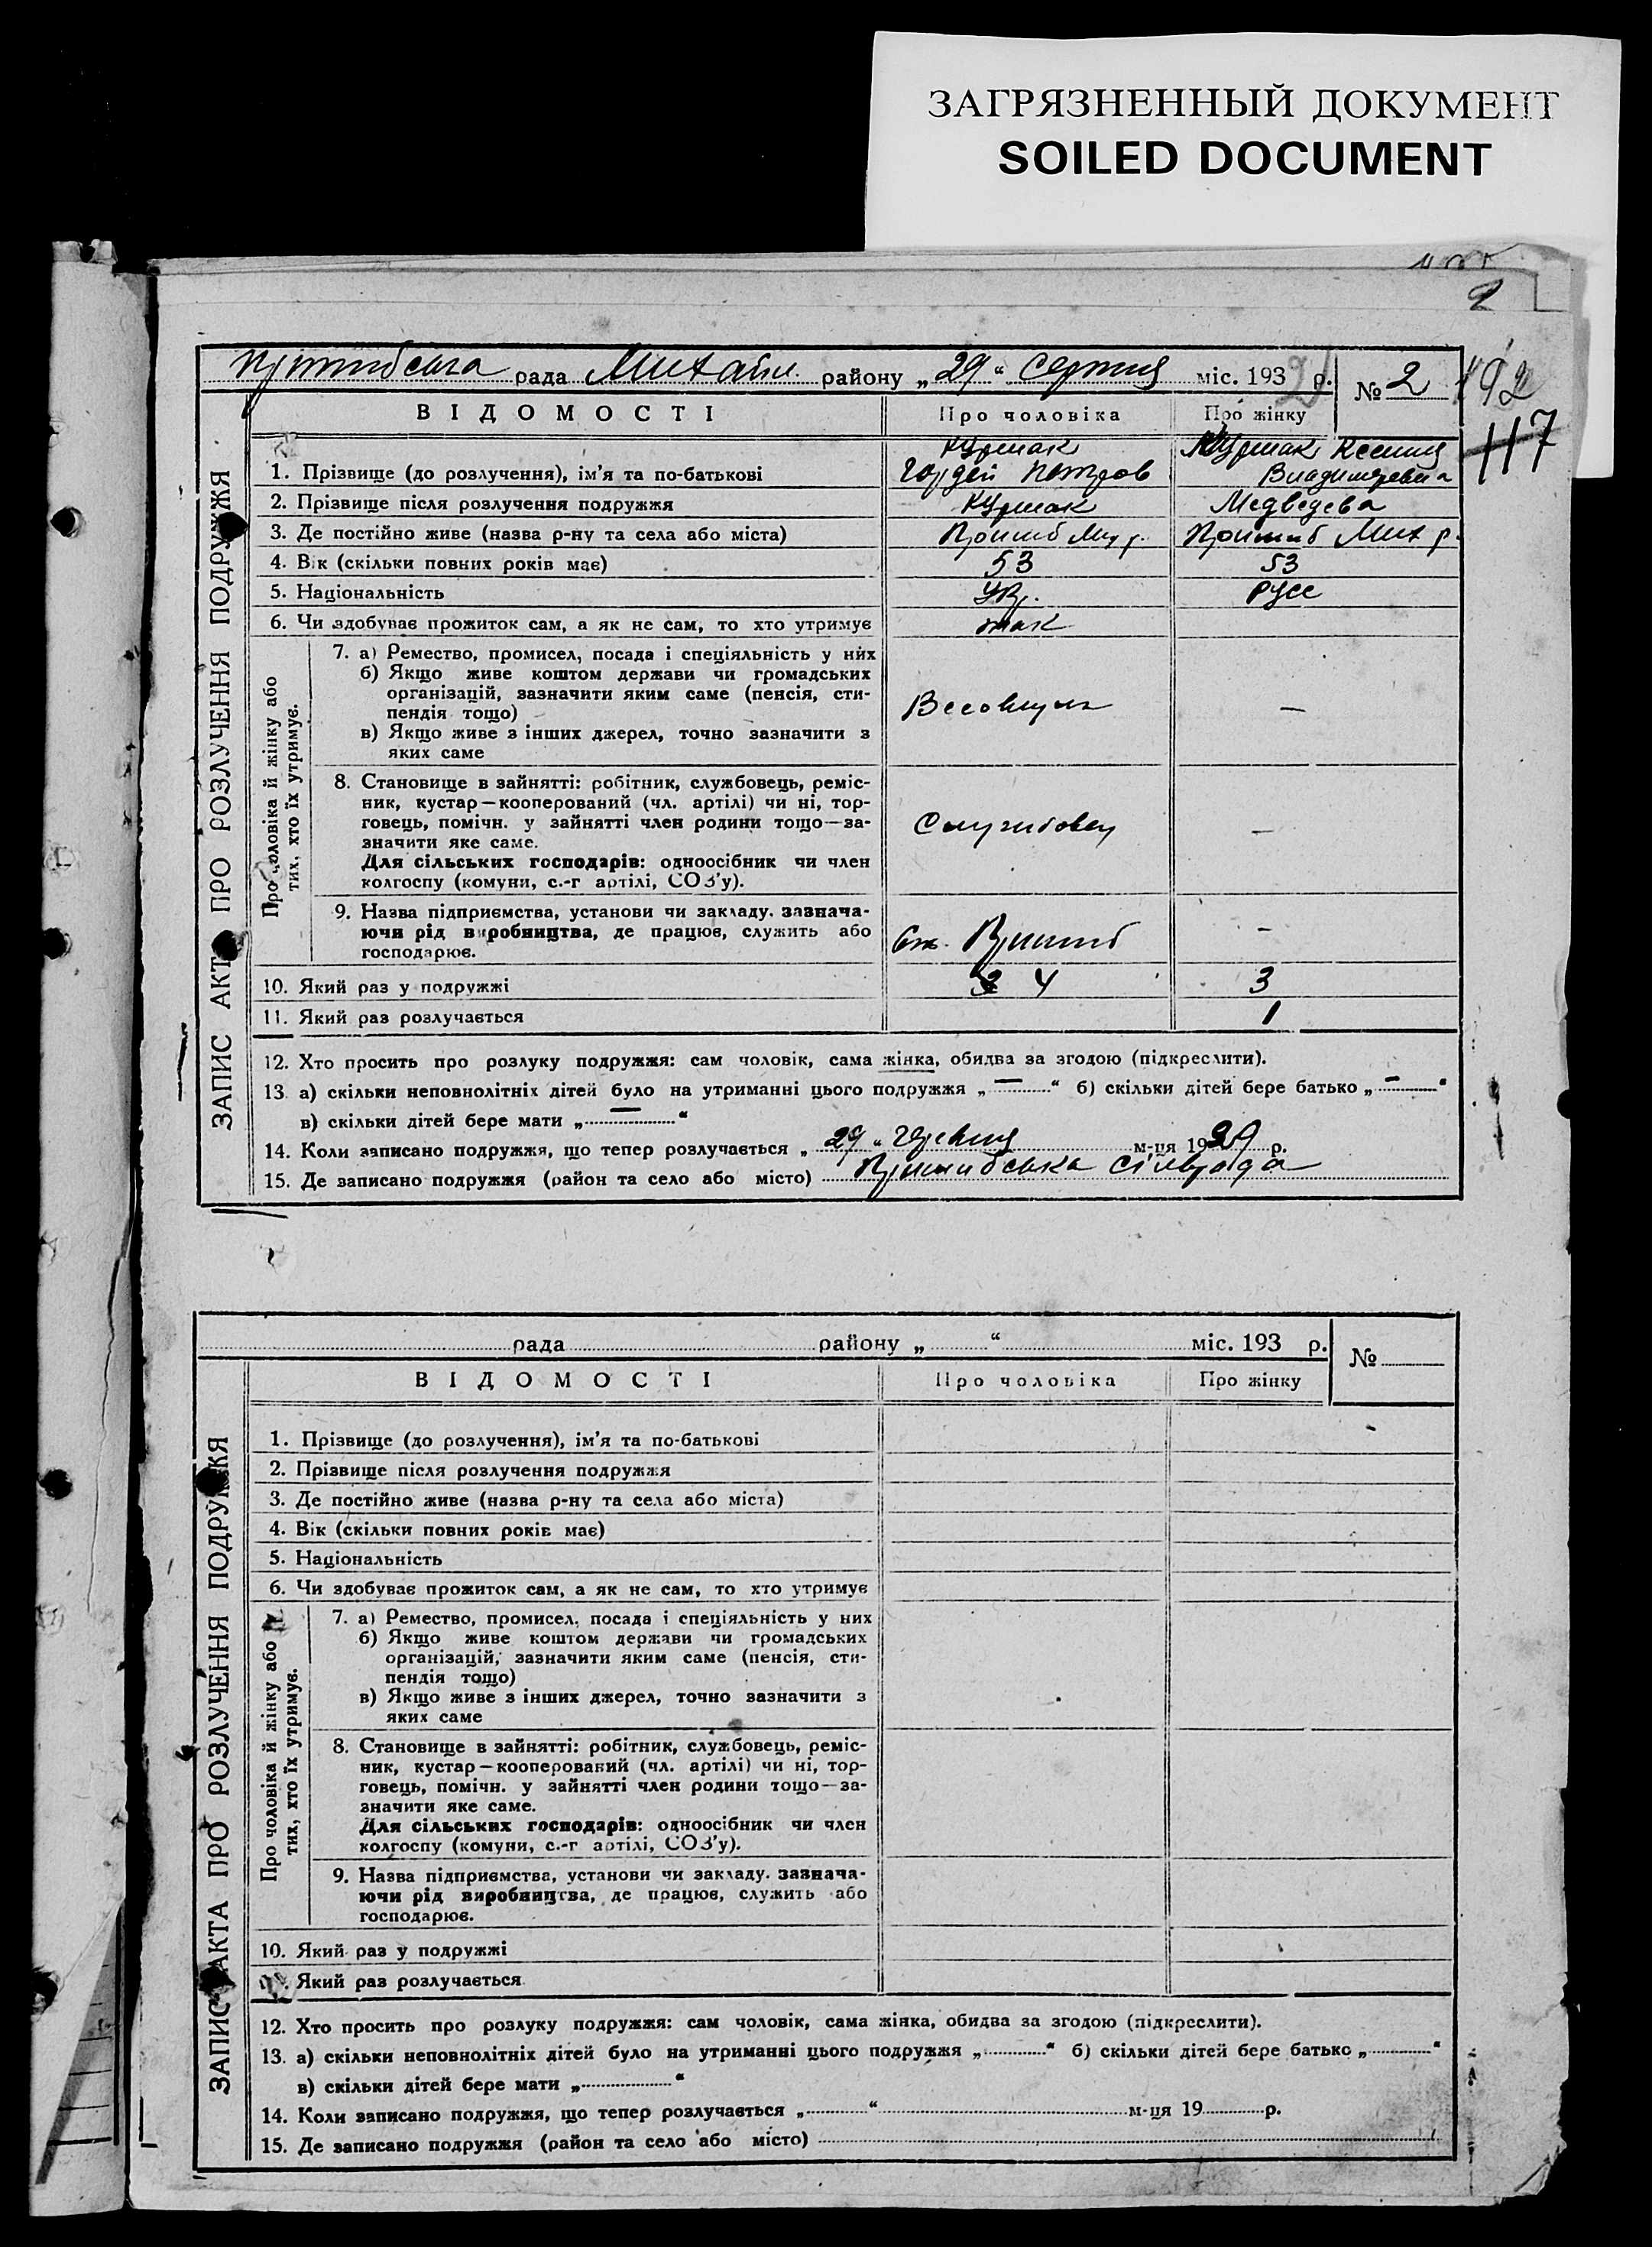 ЗАГРЯЗНЕННЫЙ ДОКУМЕНТ
SOILED DOCUMENT
2
рада Михайл. району „29“ серпня міс. 193 р. № 2
192
117
ЗАПИС АКТА ПРО РОЗЛУЧЕННЯ ПОДРУЖЖЯ
ВІДОМОСТІ Про чоловіка Про жінку
Куршак Куршак Ксения
1. Прізвище (до розлучення), ім’я та по-батькові Гордей Петров Владимировна
2. Прізвище після розлучення подружжя Куршак Медведева
3. Де постійно живе (назва р-ну та села або міста) Пришиб Мих р. Пришиб Мих р.
4. Вік (скільки повних років має) 53 53
5. Національність Укр. русс
6. Чи здобуває прожиток сам, а як не сам, то хто утримує так
Про чоловіка й жінку або тих, хто їх утримує.
7. а) Ремество, промисел, посада і спеціяльність у них
б) Якщо живе коштом держави чи громадських
організацій, зазначити яким саме (пенсія, сти-
пендія тощо) Весовщик —
в) Якщо живе з інших джерел, точно зазначити з
яких саме
8. Становище в зайнятті: робітник, службовець, реміс-
ник, кустар—кооперований (чл. артілі) чи ні, тор-
говець, помічн. у зайнятті член родини тощо—за- Службовец —
значити яке саме.
Для сільських господарів: одноосібник чи член
колгоспу (комуни, с.-г артілі, СОЗ’у).
9. Назва підприємства, установи чи закладу. зазнача-
ючи рід виробництва, де працює, служить або Ст. Пришиб -
господарює.
10. Який раз у подружжі 4 3
11. Який раз розлучається 1
12. Хто просить про розлуку подружжя: сам чоловік, сама жінка, обидва за згодою (підкреслити).
13. а) скільки неповнолітніх дітей було на утриманні цього подружжя „—“ б) скільки дітей бере батько „—“
в) скільки дітей бере мати „—“
14. Коли записано подружжя, що тепер розлучається „29“ червня м-ця 19 р.
15. Де записано подружжя (район та село або місто) Пришибська сільрада
рада району „ “ міс. 193 р. №
ЗАПИС АКТА ПРО РОЗЛУЧЕННЯ ПОДРУЖЖЯ
ВІДОМОСТІ Про чоловіка Про жінку
1. Прізвище (до розлучення), ім’я та по-батькові
2. Прізвище після розлучення подружжя
3. Де постійно живе (назва р-ну та села або міста)
4. Вік (скільки повних років має)
5. Національність
6. Чи здобуває прожиток сам, а як не сам, то хто утримує
Про чоловіка й жінку або тих, хто їх утримує.
7. а) Ремество, промисел, посада і спеціяльність у них
б) Якщо живе коштом держави чи громадських
організацій, зазначити яким саме (пенсія, сти-
пендія тощо)
в) Якщо живе з інших джерел, точно зазначити з
яких саме
8. Становище в зайнятті: робітник, службовець, реміс-
ник, кустар—кооперований (чл. артілі) чи ні, тор-
говець, помічн. у зайнятті член родини тощо—за-
значити яке саме.
Для сільських господарів: одноосібник чи член
колгоспу (комуни, с.-г артілі, СОЗ’у).
9. Назва підприємства, установи чи закладу. зазнача-
ючи рід виробництва, де працює, служить або
господарює.
10. Який раз у подружжі
Який раз розлучається
12. Хто просить про розлуку подружжя: сам чоловік, сама жінка, обидва за згодою (підкреслити).
13. а) скільки неповнолітніх дітей було на утриманні цього подружжя „ “ б) скільки дітей бере батько „ “
в) скільки дітей бере мати „ “
14. Коли записано подружжя, що тепер розлучається „ “ м-ця 19 р.
15. Де записано подружжя (район та село або місто)